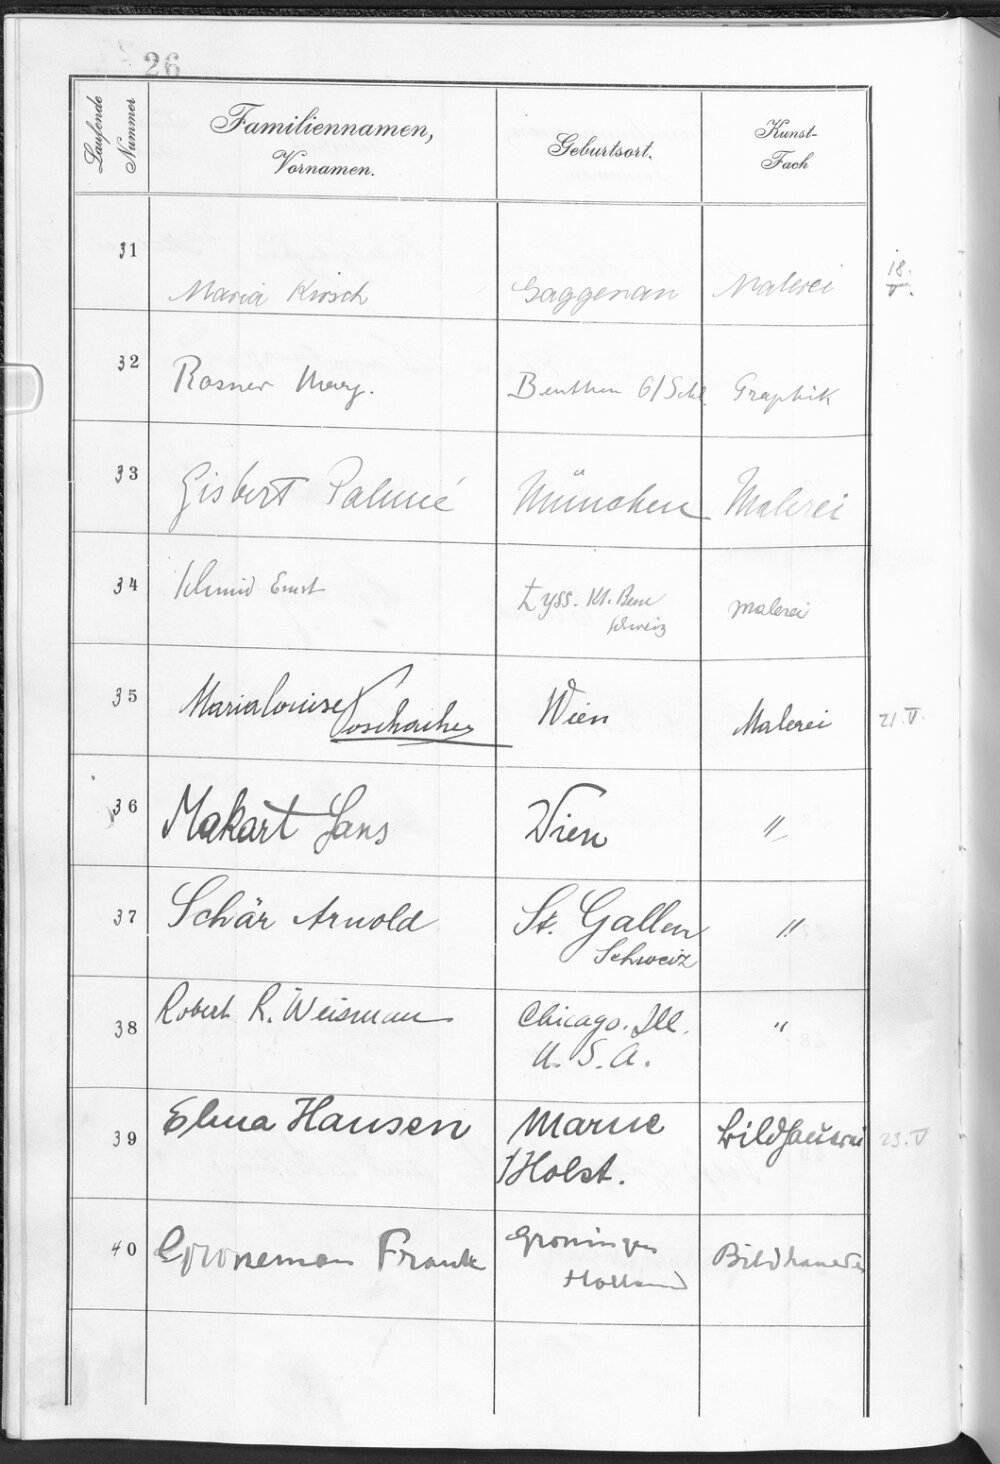 26
Laufende Nummer
Familiennamen, Vornamen.
Geburtsort.
Kunst-Fach
31 Maria Kirsch Gaggenau Malerei 18. V.
32 Rosner Mary. Beuthen O/Schl. Graphik
33 Gisbert Palmié München Malerei
34 Schmid Ernst Lyss. Kt. Bern Schweiz Malerei
35 Marialouise Poschacher Wien Malerei 21. V.
36 Makart Hans Wien "
37 Schär Arnold St. Gallen Schweiz "
38 Robert R. Weisman Chicago. Ill. U. S. A. "
39 Elma Hansen Marne /Holst. Bildhauerei 23. V
40 Groneman Frank Groningen Holland Bildhauer